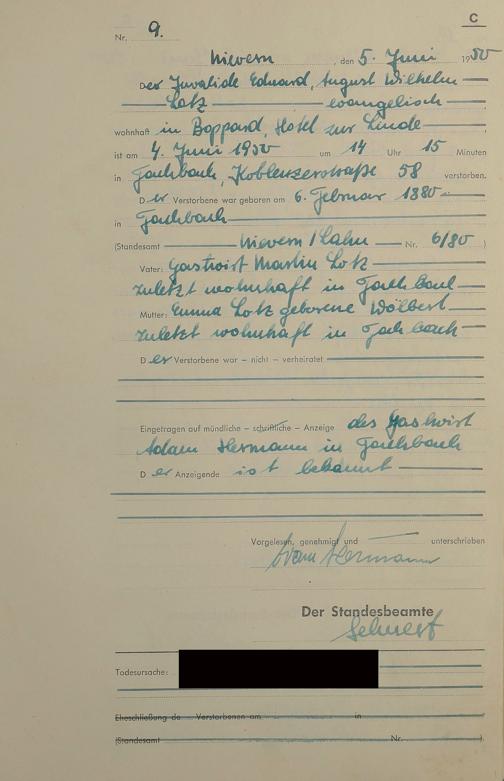 C
Nr. 9.
Nievern, den 5. Juni 1950
Der Invalide Eduard, August Wilhelm
Lotz evangelisch
wohnhaft in Boppard, Hotel zur Linde
ist am 4. Juni 1950 um 14 Uhr 15 Minuten
in Fachbach, Koblenzerstraße 58 verstorben.
Der Verstorbene war geboren am 6. Februar 1880
in Fachbach
(Standesamt Nievern/Lahn Nr. 6/80)
Vater: Gastwirt Martin Lotz
zuletzt wohnhaft in Fachbach
Mutter: Emma Lotz geborene Wölbert
zuletzt wohnhaft in Fachbach
Der Verstorbene war – nicht – verheiratet
Eingetragen auf mündliche – schriftliche – Anzeige des Gastwirt
Adam Hermann in Fachbach
Der Anzeigende ist bekannt
Vorgelesen, genehmigt und unterschrieben
Adam Hermann
Der Standesbeamte
Todesursache:
Eheschließung de Verstorbenen am in
(Standesamt Nr. )